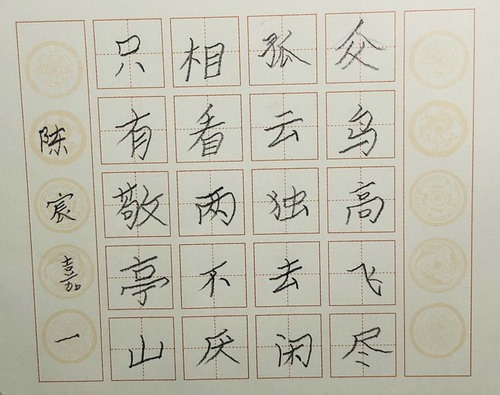 众鸟高飞尽
孤云独去闲
相看两不厌
只有敬亭山
陈宸嘉一